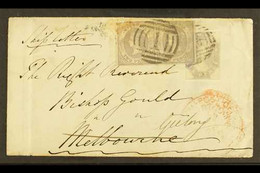 Ship Letter
The Right Reverend
Bishop Gould
or Geelong
Melbourne